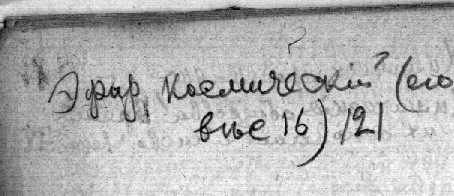 Эфир, космическій? (его
вне 16) 121